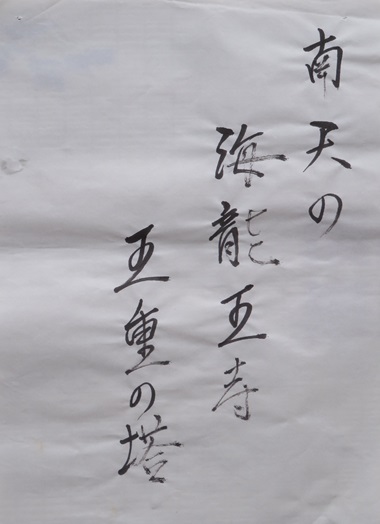 南天の
海龍王寺
五重の塔